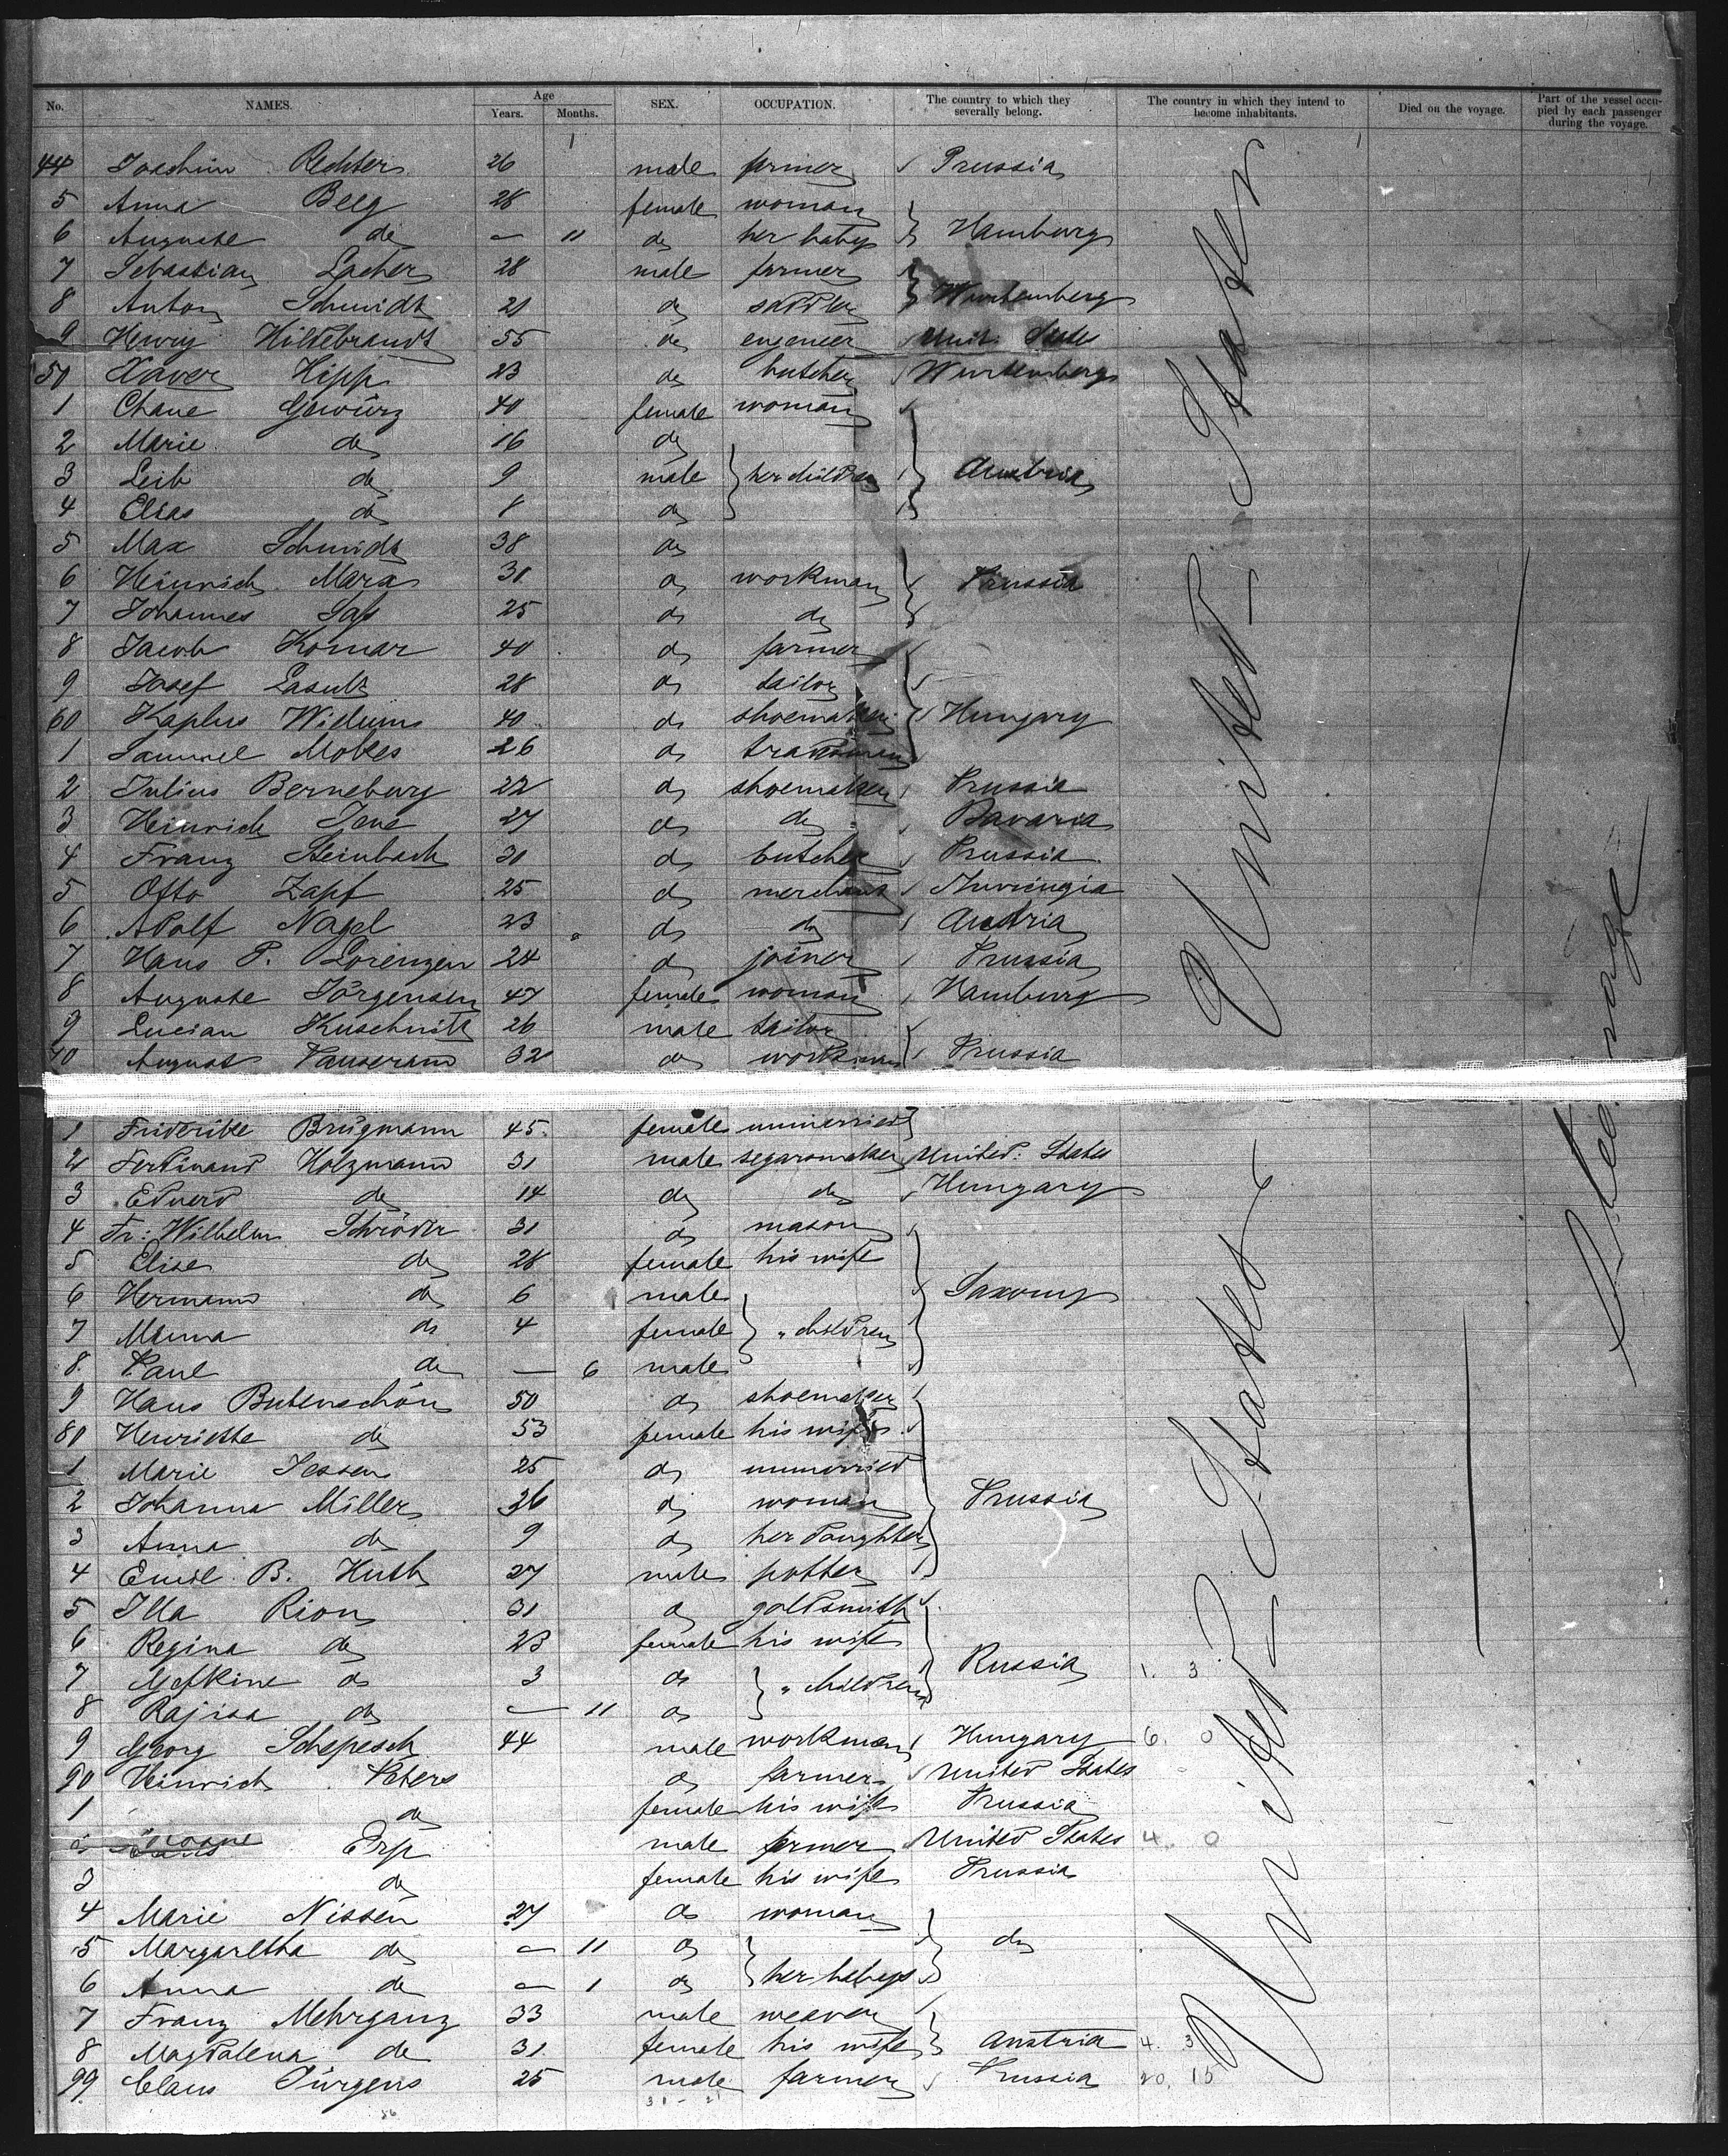 No. NAMES. Age Years. Months. SEX. OCCUPATION. The country to which they severally belong. The country in which they intend to become inhabitants. Died on the voyage. Part of the vessel occupied by each passenger during the voyage.
44 Joachim Rechter 26 male farmer Prussia
5 Anna Beeg 28 female woman
6 Auguste do — 11 do her baby } Hamburg
7 Sebastian Lacher 28 male farmer
8 Anton Schmidt 21 do saddler } Wurtemberg
9 Henry Hildebrandt 55 do engeneer Unit. States
50 Xaver Hipp 23 do butcher Wurtemberg
1 Chane Gewürz 40 female woman
2 Marie do 16 do
3 Leib do 9 male } her children } Austria
4 Elias do 8 do
5 Max Schmidt 38 do
6 Heinrich Marx 31 do workman } Prussia
7 Johannes 25 do do
8 Jacob Komar 40 do farmer
9 Josef 28 do tailor
60 Kaplus 40 do shoemaker } Hungary
1 Samuel Mokes 26 do tradesman
2 Julius Berneburg 22 do shoemaker Prussia
3 Heinrich Jene 27 do do Bavaria
4 Franz Steinbach 31 do butcher Prussia
5 Otto Zapf 25 do merchant Thuringia
6 Adolf Nagel 23 do do Austria
7 Hans P. Lorenzen 24 do joiner Prussia
8 Auguste Jörgensen 47 female woman Hamburg
9 Lucian Kuschnitz 26 male tailor
70 August 32 do workman } Prussia
1 Friderike Brügmann 45 female unmerried }
2 Ferdinand Holzmann 31 male segarsmaker United States
3 Eduerd do 14 do do Hungary
4 Fr: Wilhelm Schröder 31 do mason
5 Elise do 28 female his wife
6 Hermann do 6 male } Saxony
7 Minna do 4 female } " children
8 Paul do — 6 male
9 Hans Butenschön 50 do shoemaker
80 Henriette do 53 female his wife
1 Marie Jessen 25 do unmerried
2 Johanna Müller 36 do woman } Prussia
3 Anna do 9 do her daughter
4 Emil B. Huth 27 male potter
5 Illa Rion 31 do goldsmith
6 Regina do 23 female his wife
7 do 3 do } " children } Russia 1. 3
8 Rajisa do — 11 do
9 Georg Schepesch 44 male workman Hungary 6. 0
90 Heinrich Peters do farmer United States
1 do female his wife Prussia
Erp male farmer United States 4. 0
3 do female his wife Prussia
4 Marie Nissen 27 do woman
5 Margaretha do — 11 do } her babys } do
6 Anna do — 1 do
7 Franz Mehrganz 33 male weaver
8 Magdalena do 31 female his wife } Austria 4. 3
99 Claus Jürgens 25 male farmer Prussia 20. 15
United States
United States